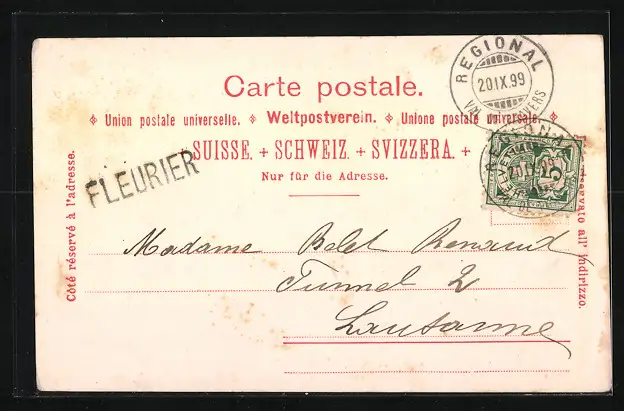 REGIONAL
20 IX 99
VAL DE TRAVERS
Carte postale.
Union postale universelle. Weltpostverein. Unione postale universale.
+ SUISSE. + SCHWEIZ. + SVIZZERA. +
Nur für die Adresse.
Côté réservé à l'adresse.
FLEURIER
HELVETIA
5
riservato all' indirizzo.
Madame Belet Renaud
Tunnel 2
Lausanne